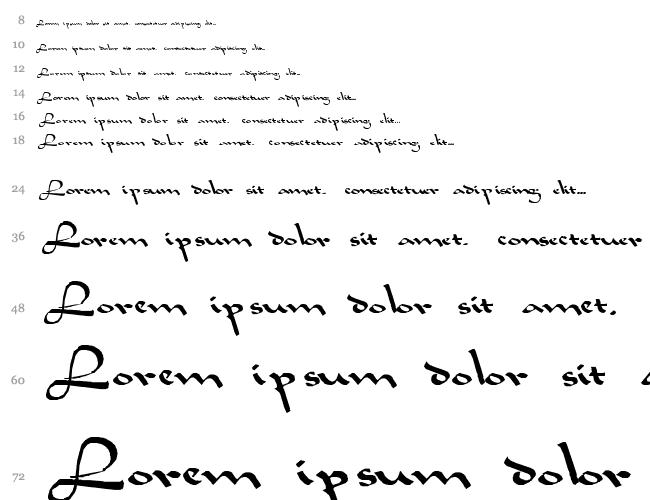 8 Lorem ipsum dolor sit amet. consectetuer adipiscing elit...
10 Lorem ipsum dolor sit amet. consectetuer adipiscing elit...
12 Lorem ipsum dolor sit amet. consectetuer adipiscing elit...
14 Lorem ipsum dolor sit amet. consectetuer adipiscing elit...
16 Lorem ipsum dolor sit amet. consectetuer adipiscing elit...
18 Lorem ipsum dolor sit amet. consectetuer adipiscing elit...
24 Lorem ipsum dolor sit amet. consectetuer adipiscing elit...
36 Lorem ipsum dolor sit amet. consectetuer
48 Lorem ipsum dolor sit amet.
60 Lorem ipsum dolor sit
72 Lorem ipsum dolor